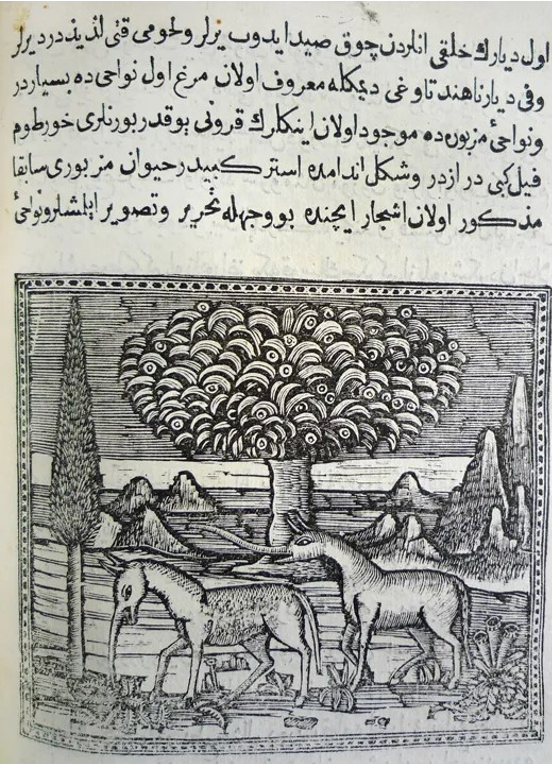 اول ديارك خلقى انلردن چوق صيد ايدوب يرلر ولحومى قتى لذيذدر ديرلر
وفى ديارنا هند تاوغى ديمكله معروف اولان مرغ اول نواحى ده بسياردر
ونواحئ مزبوره ده موجود اولان اينكلرك قرونى يوقدر بورنلرى خورطوم
فيل كبى درازدر وشكل اندامده استر كبيدر حيوان مزبورى سابقا
مذكور اولان اشجار ايچنده بو وجهله تحرير وتصوير ايلمشلر ونواحئ